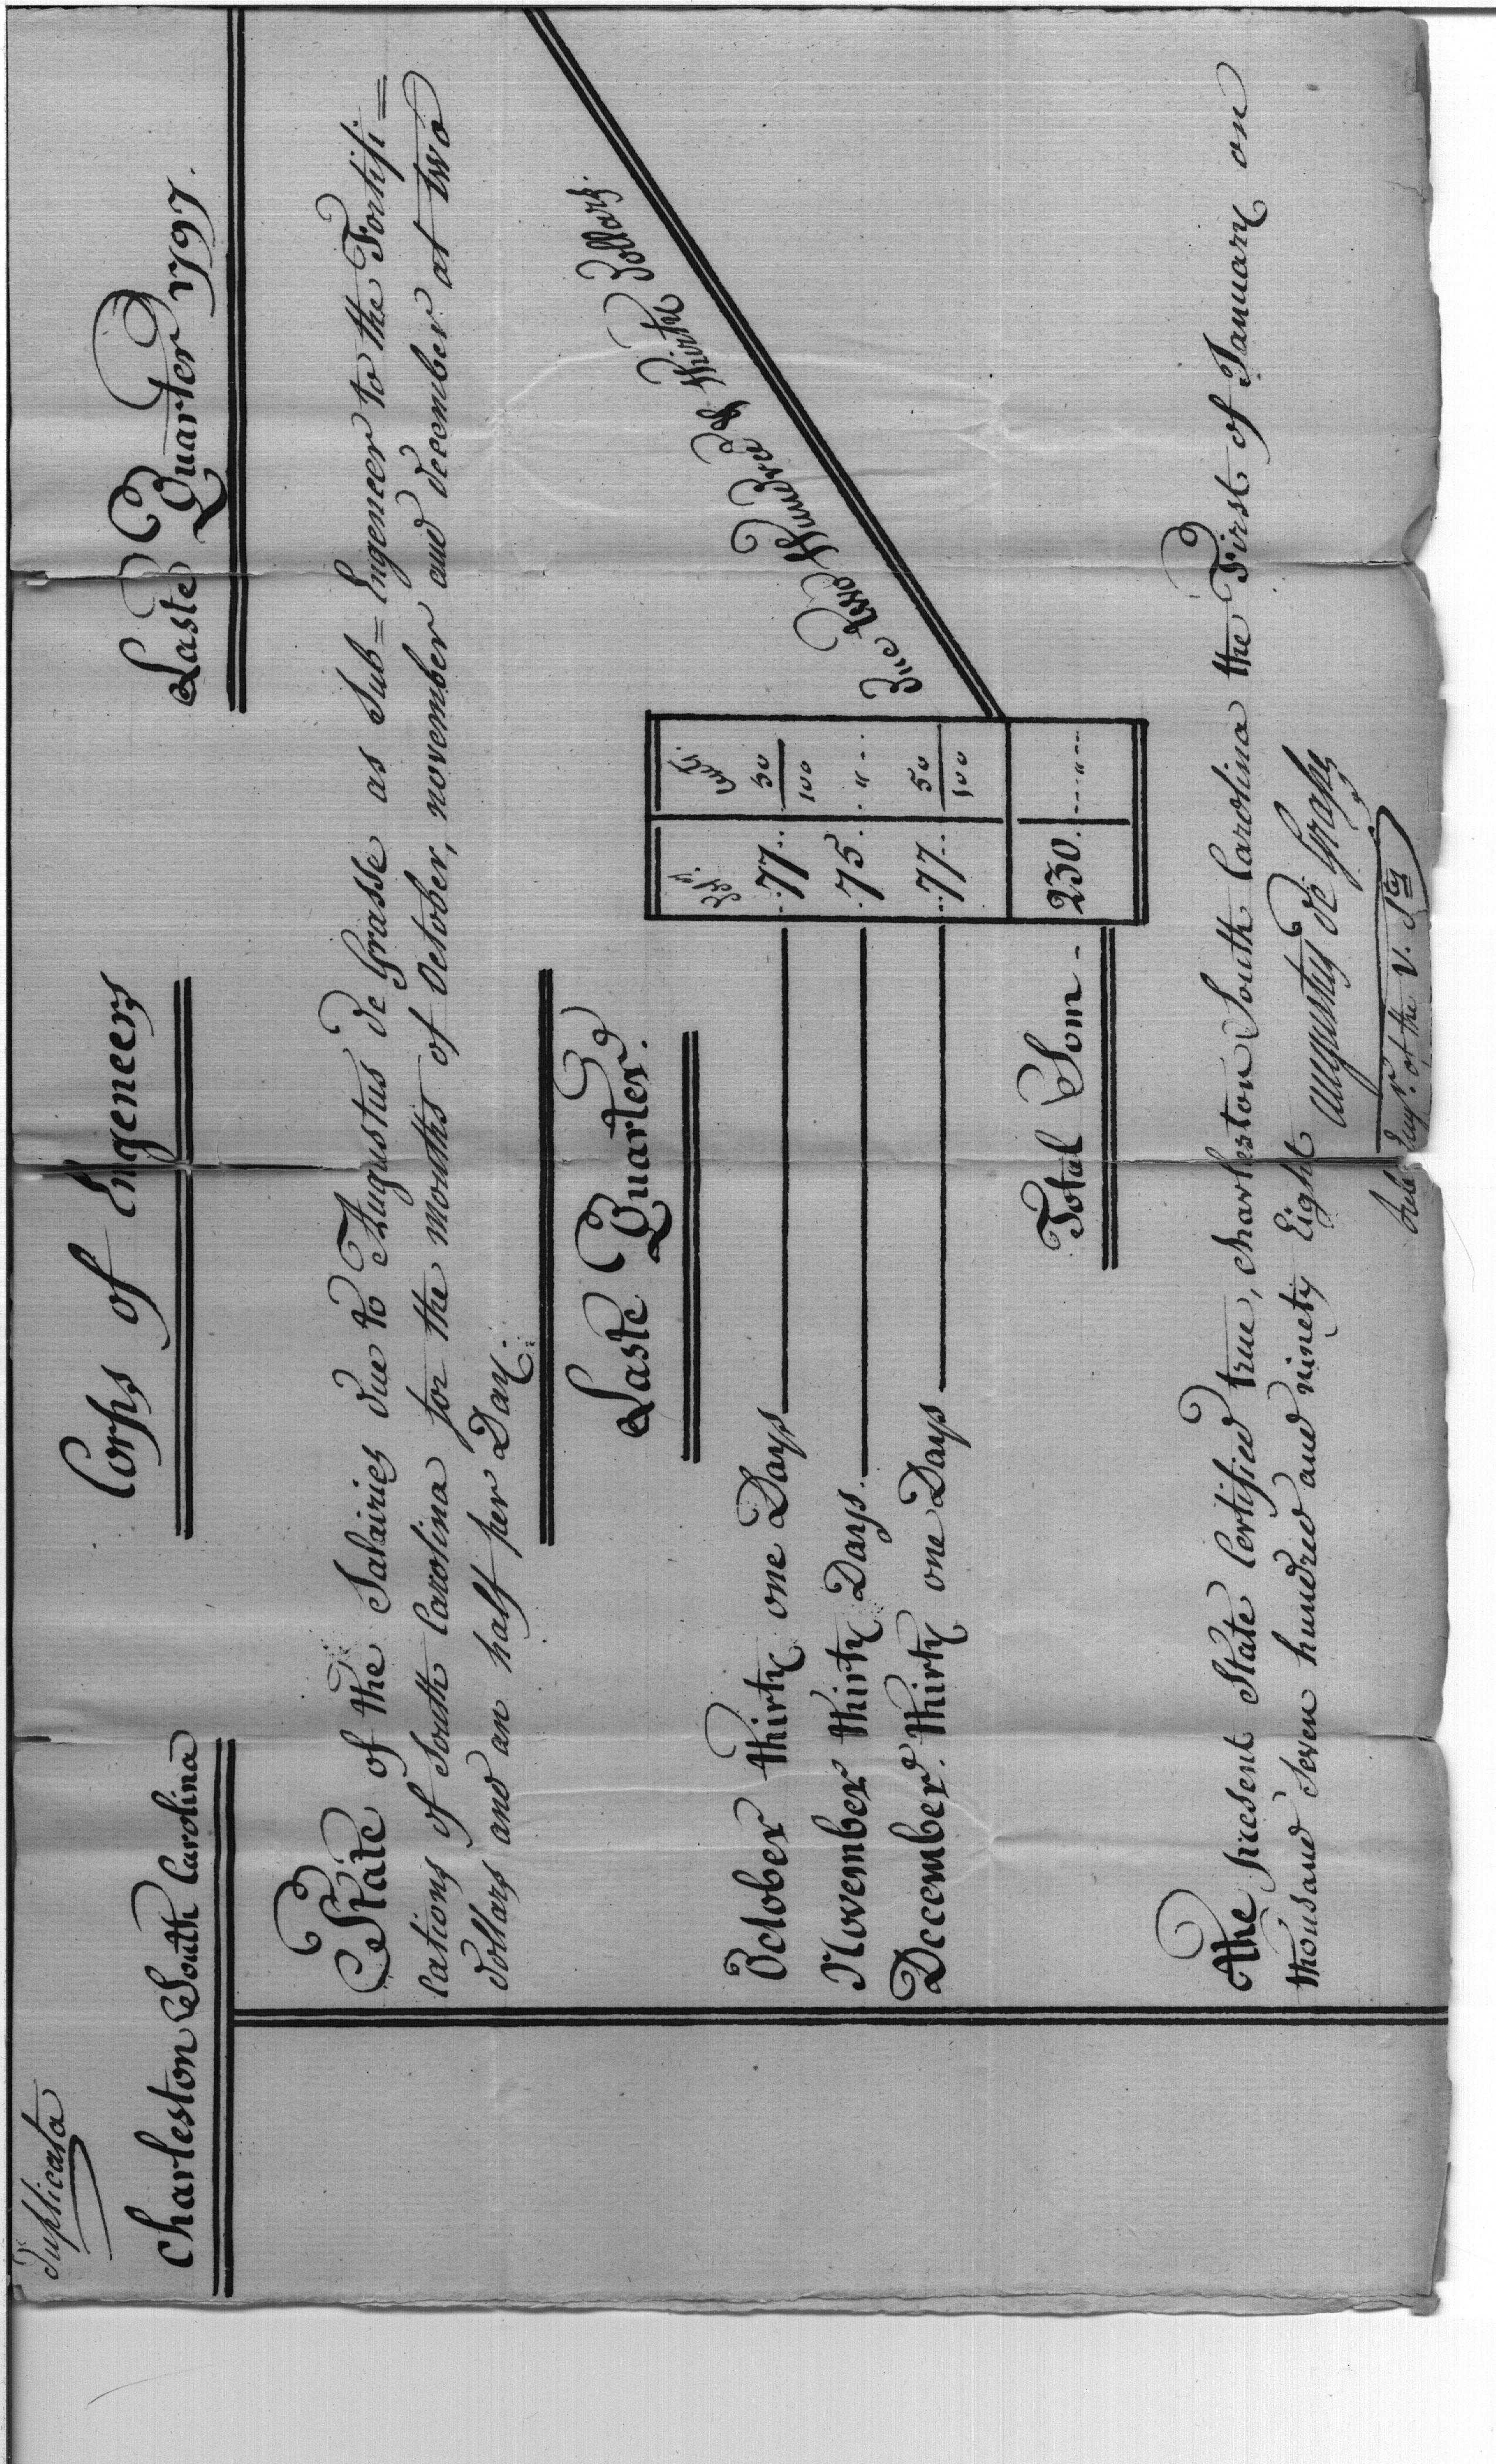 Duplicata
Charleston South Carolina
Corps of Engeneers
Laste Quarter 1797.
State of the Salairies due to Augustus de Grasse as Sub=Engeneer to the Fortifi=
cations of South Carolina for the months of October, november and december at two
dollars and an half per Day.
Laste Quarter.
Doll.rs Cts.
October thirty one Days 77.. 50/100
November thirty Days. 75. . " ..
December. thirty one Days 77.. 50/100
Total Som - 230. ... " ...
Due two Hundred & thirty Dollars.
The present State Certified true, charleston South Carolina the First of January on
thousand seven hundred and ninety Eight
augustus de Grasse
Engr. of the U. Sts